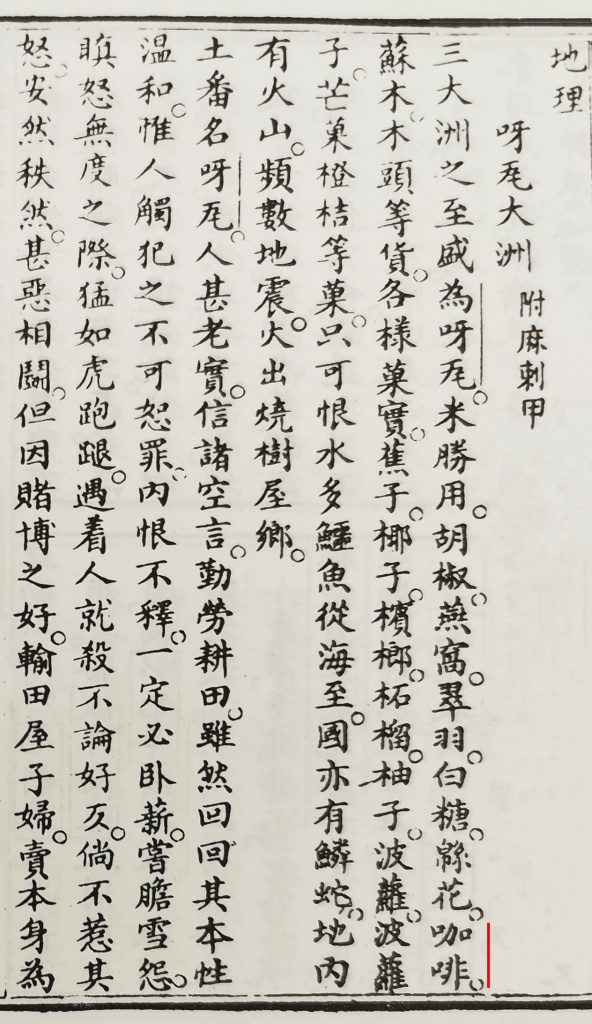 地理
呀瓦大洲 附麻剌甲
三大洲之至盛為呀瓦。米勝用。胡椒。燕窩。翠羽。白糖。緜花。咖啡。
蘇木木頭等貨。各樣菓實。蕉子。椰子。檳榔。柘榴。柚子。波蘿。波蘿
子。芒菓橙桔等菓。只可恨水多鱷魚從海至。國亦有鱗蛇。地内
有火山。頻數地震。火出燒樹屋鄉。
土番名呀瓦。人甚老實。信諸空言。勤勞耕田。雖然回回其本性
温和。惟人觸犯之不可恕罪。内恨不釋。一定必卧薪。嘗膽雪怨。
瞋怒無度之際。猛如虎跑腿。遇着人就殺不論好歹。倘不惹其
怒。安然秩然。甚惡相鬭。但因賭博之好。輸田屋子婦。賣本身為